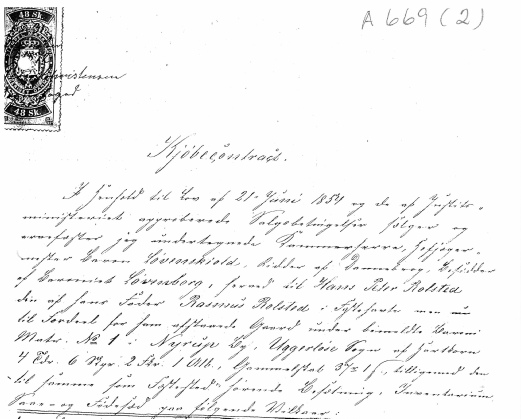 A 669 (2)
48 Sk.
Christensen
48 Sk.
Kjöbecontract.
I Henhold til Lov af 21 Juni 1854 og de af Justits-
ministeriet approberede Salgsbetingelser sælger og
arvefæster jeg undertegnede Kammerherre, Hofjæger-
mester Baron Løvenskiold, Ridder af Dannebrog, Besidder
af Baroniet Løvenborg, herved til Hans Peder Rolsted
den af hans Fader Rasmus Rolsted i Fæste havte men nu
til Fordeel for ham afstaaede Gaard under bemeldte Baroni
Matr. No 1 i Nyrup By, Uggerløse Sogn af Hartkorn
4 Tdr. 6 Skpr. 2 Fdr. 1 Alb., Gammelskat tilligemed den
til samme som Fæstested hørende Besætning, Inventarium
Sæde og Födekorn paa følgende Vilkaar: